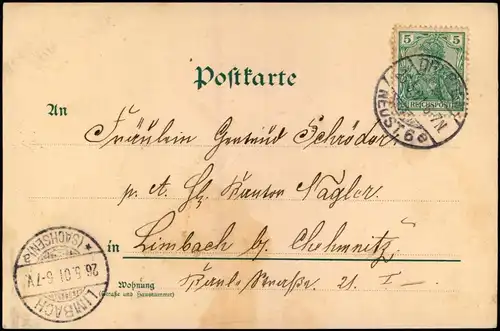 5 5
REICHSPOST
NEUST. 6 e
Postkarte
An
Fräulein Gertrud Schröder
p. A. Hr. Kantor Nagler.
in Limbach b/ Chemnitz
Wohnung
(Straße und Hausnummer)
Straße. 21. I
LIMBACH
* (SACHSEN) *
26.5.01. 6-7V.